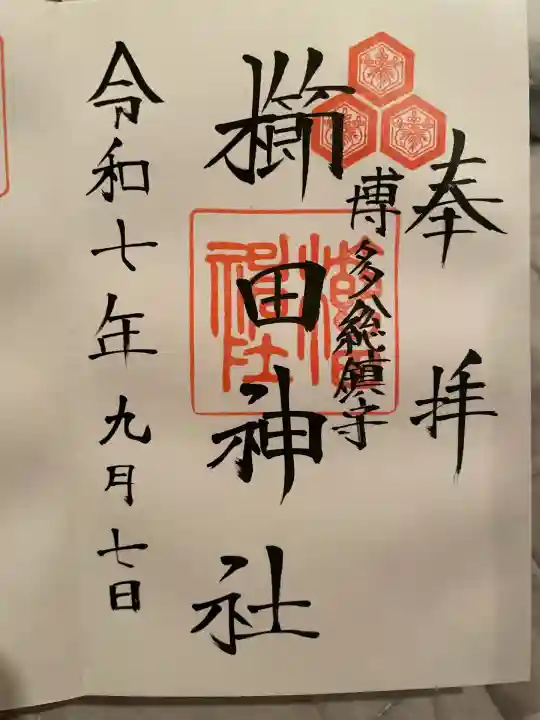 奉拝
博多総鎮守
櫛田神社
櫛田神社
令和七年九月七日